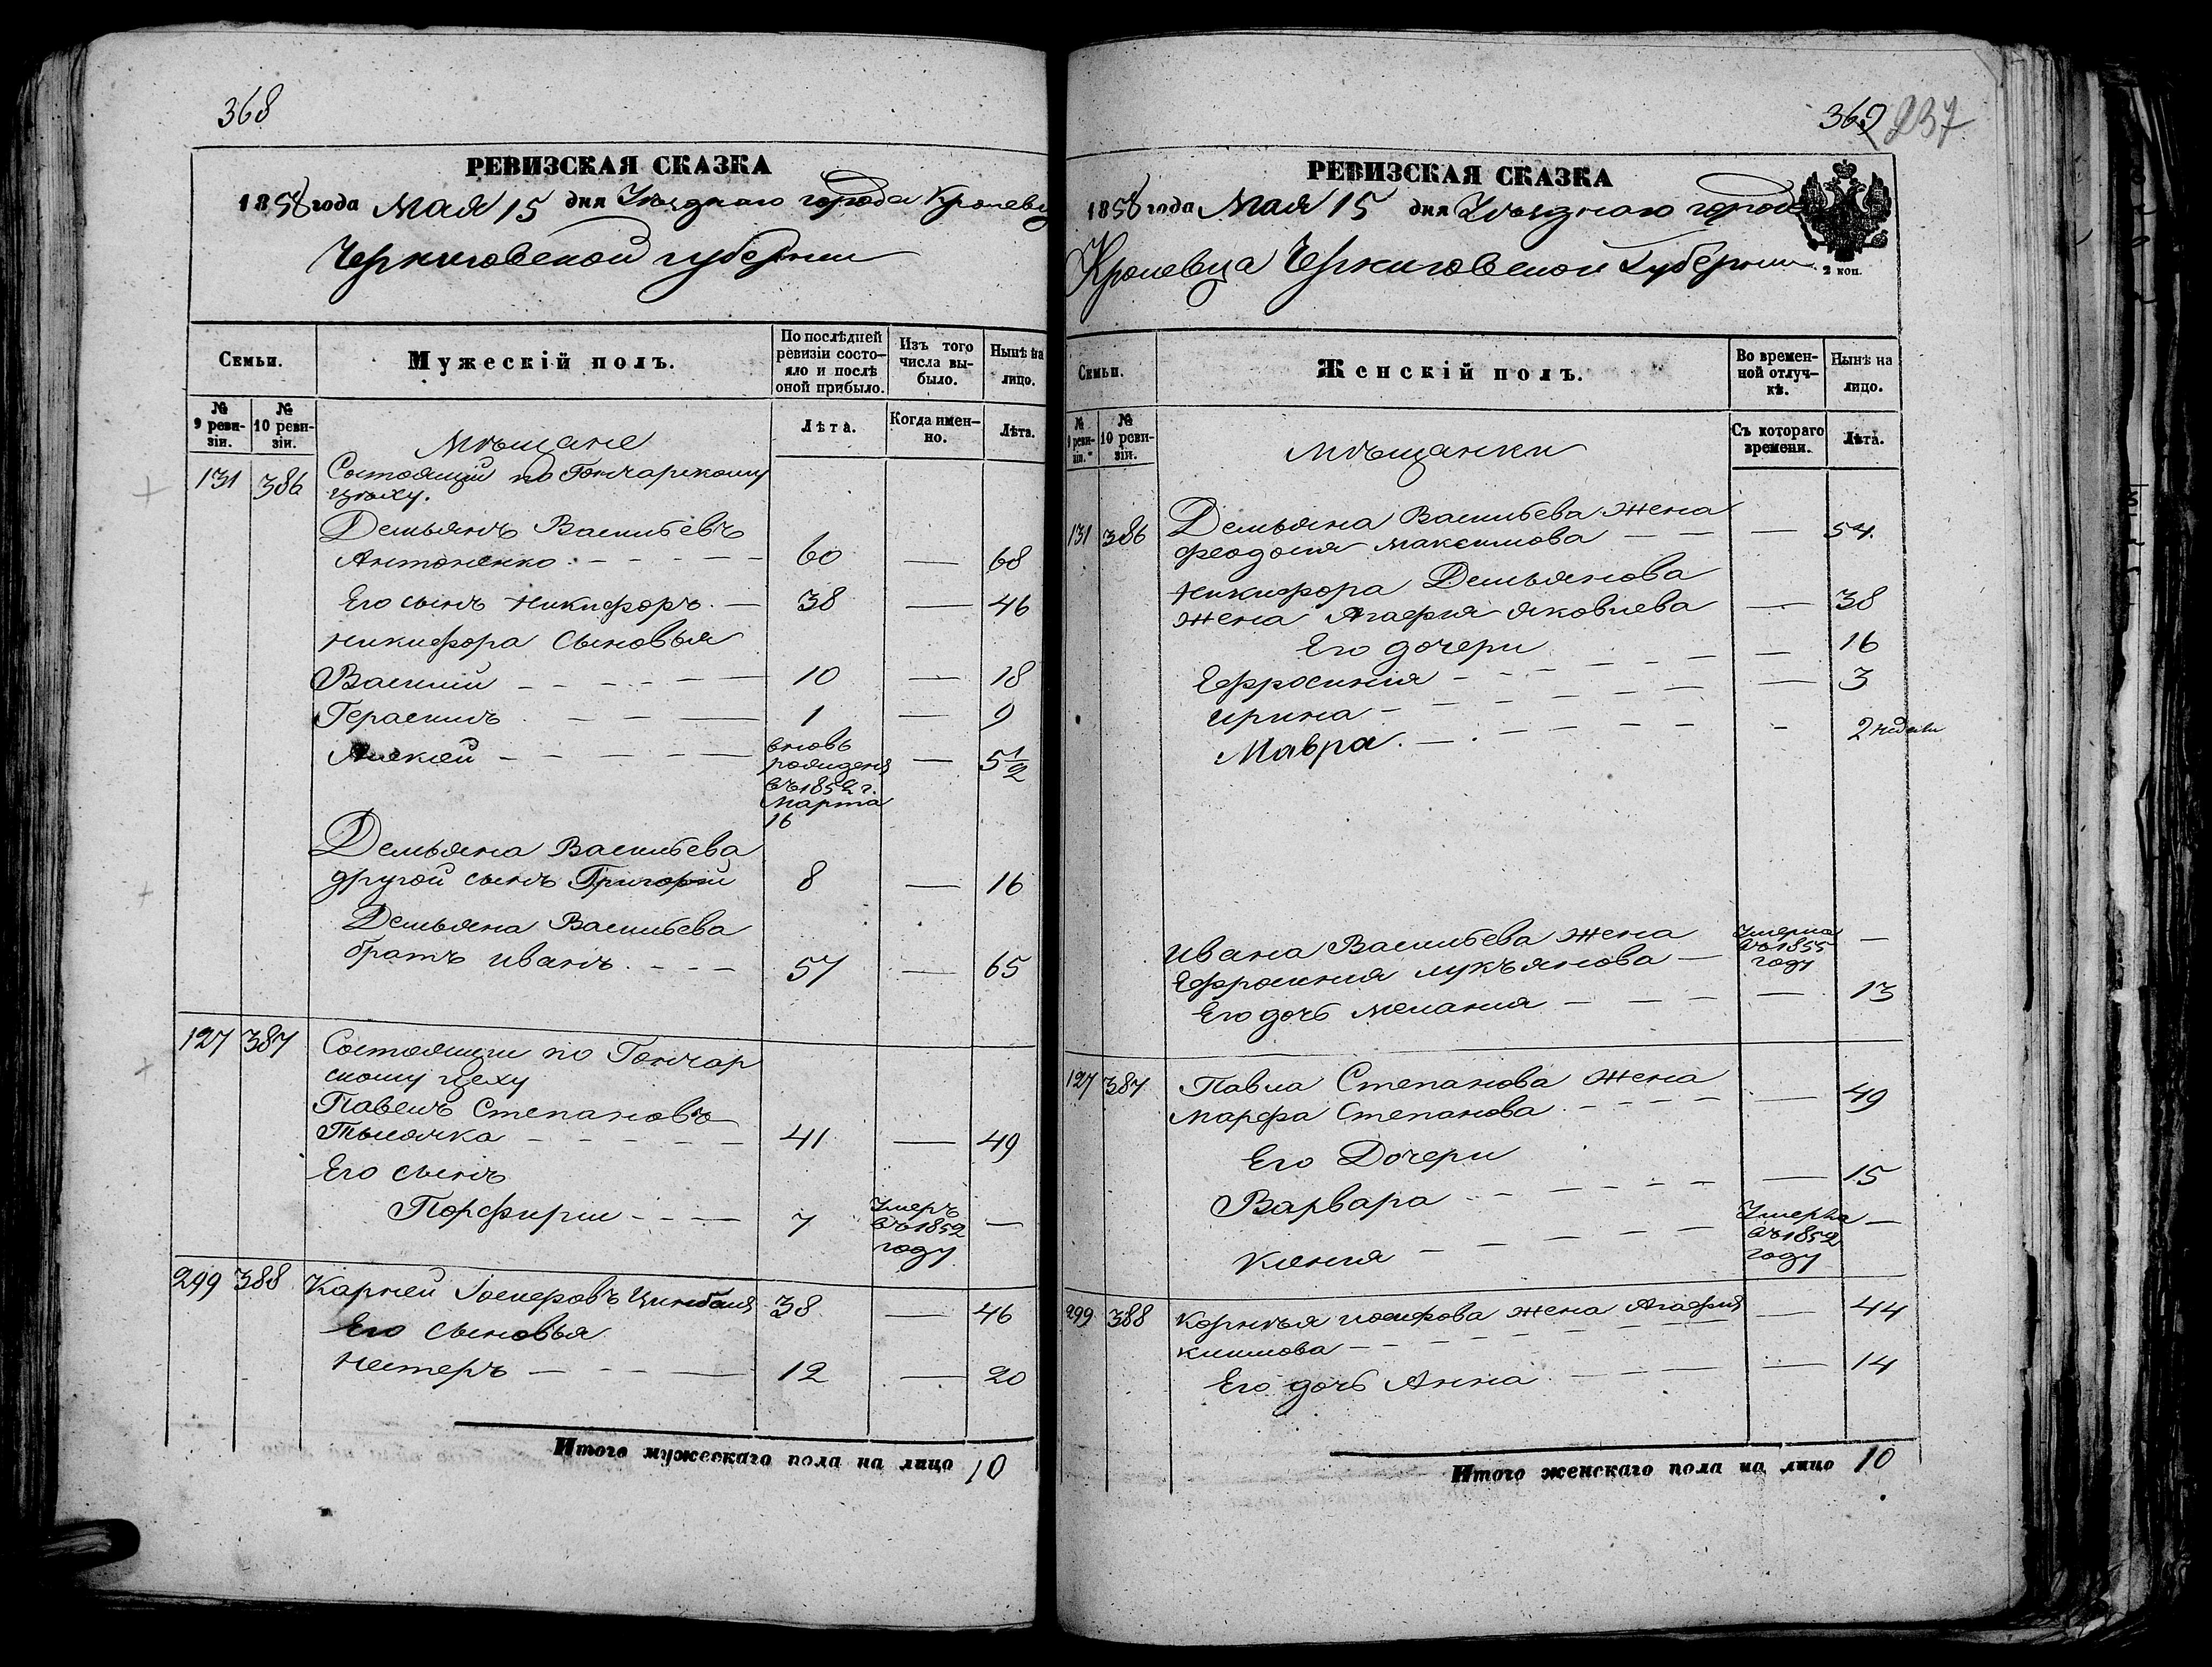 368
РЕВИЗСКАЯ СКАЗКА
1858 года Мая 15 дня Уѣзднаго города Кролевца
Черниговской губернии
Семьи.
Мужескій полъ.
По послѣдней ревизіи состояло и послѣ оной прибыло.
Изъ того числа выбыло.
Нынѣ на лицо.
№ 9 ревизіи.
№ 10 ревизіи.
Лѣта.
Когда именно.
Лѣта.
Мѣщане
131 386 Состоящій по Гончарскому
цѣху.
Демьянъ Васильевъ
Антоненко 60 — 68
Его сынъ Никифоръ. — 38 — 46
Никифора сыновья
Василий 10 — 18
Герасимъ 1 — 9
Алексей вновь рожденъ въ 1852 г. Марта 16 — 5 1/2
Демьяна Васильева
другой сынъ Григорий 8 — 16
Демьяна Васильева
братъ Иванъ. 57 — 65
127 387 Состоящии по Гончар
скому цеху
Павелъ Степановъ
41 — 49
Его сынъ
Порфирии 7 Умеръ въ 1852 году —
299 388 Карней 38 — 46
Его сыновья
Нестеръ 12 — 20
Итого мужескаго пола на лицо 10
369 237
РЕВИЗСКАЯ СКАЗКА
1858 года Мая 15 дня Уѣзднаго города
Кролевца Черниговской Губернии
2 коп.
Семьи.
Женскій полъ.
Во временной отлучкѣ.
Нынѣ на лицо.
№ 9 ревизіи.
№ 10 ревизіи.
Съ котораго времени.
Лѣта.
Мѣщанки
131 386 Демьяна Васильева жена
Феодосия Максимова — 54.
Никифора Демьянова
жена Агафия Яковлева — 38
Его дочери
Ефросиния — 16
Ирина — 3
Мавра. — 2 недели
Ивана Васильева жена
Ефросиния Лукъянова Умерла въ 1855 году —
Его дочь Мелания — 13
127 387 Павла Степанова жена
Марфа Степанова — 49
Его Дочери
Варвара — 15
Ксения Умерла въ 1852 году —
299 388 Корнѣя Иосифова жена Агафия — 44
Климова
Его дочь Анна — 14
Итого женскаго пола на лицо 10